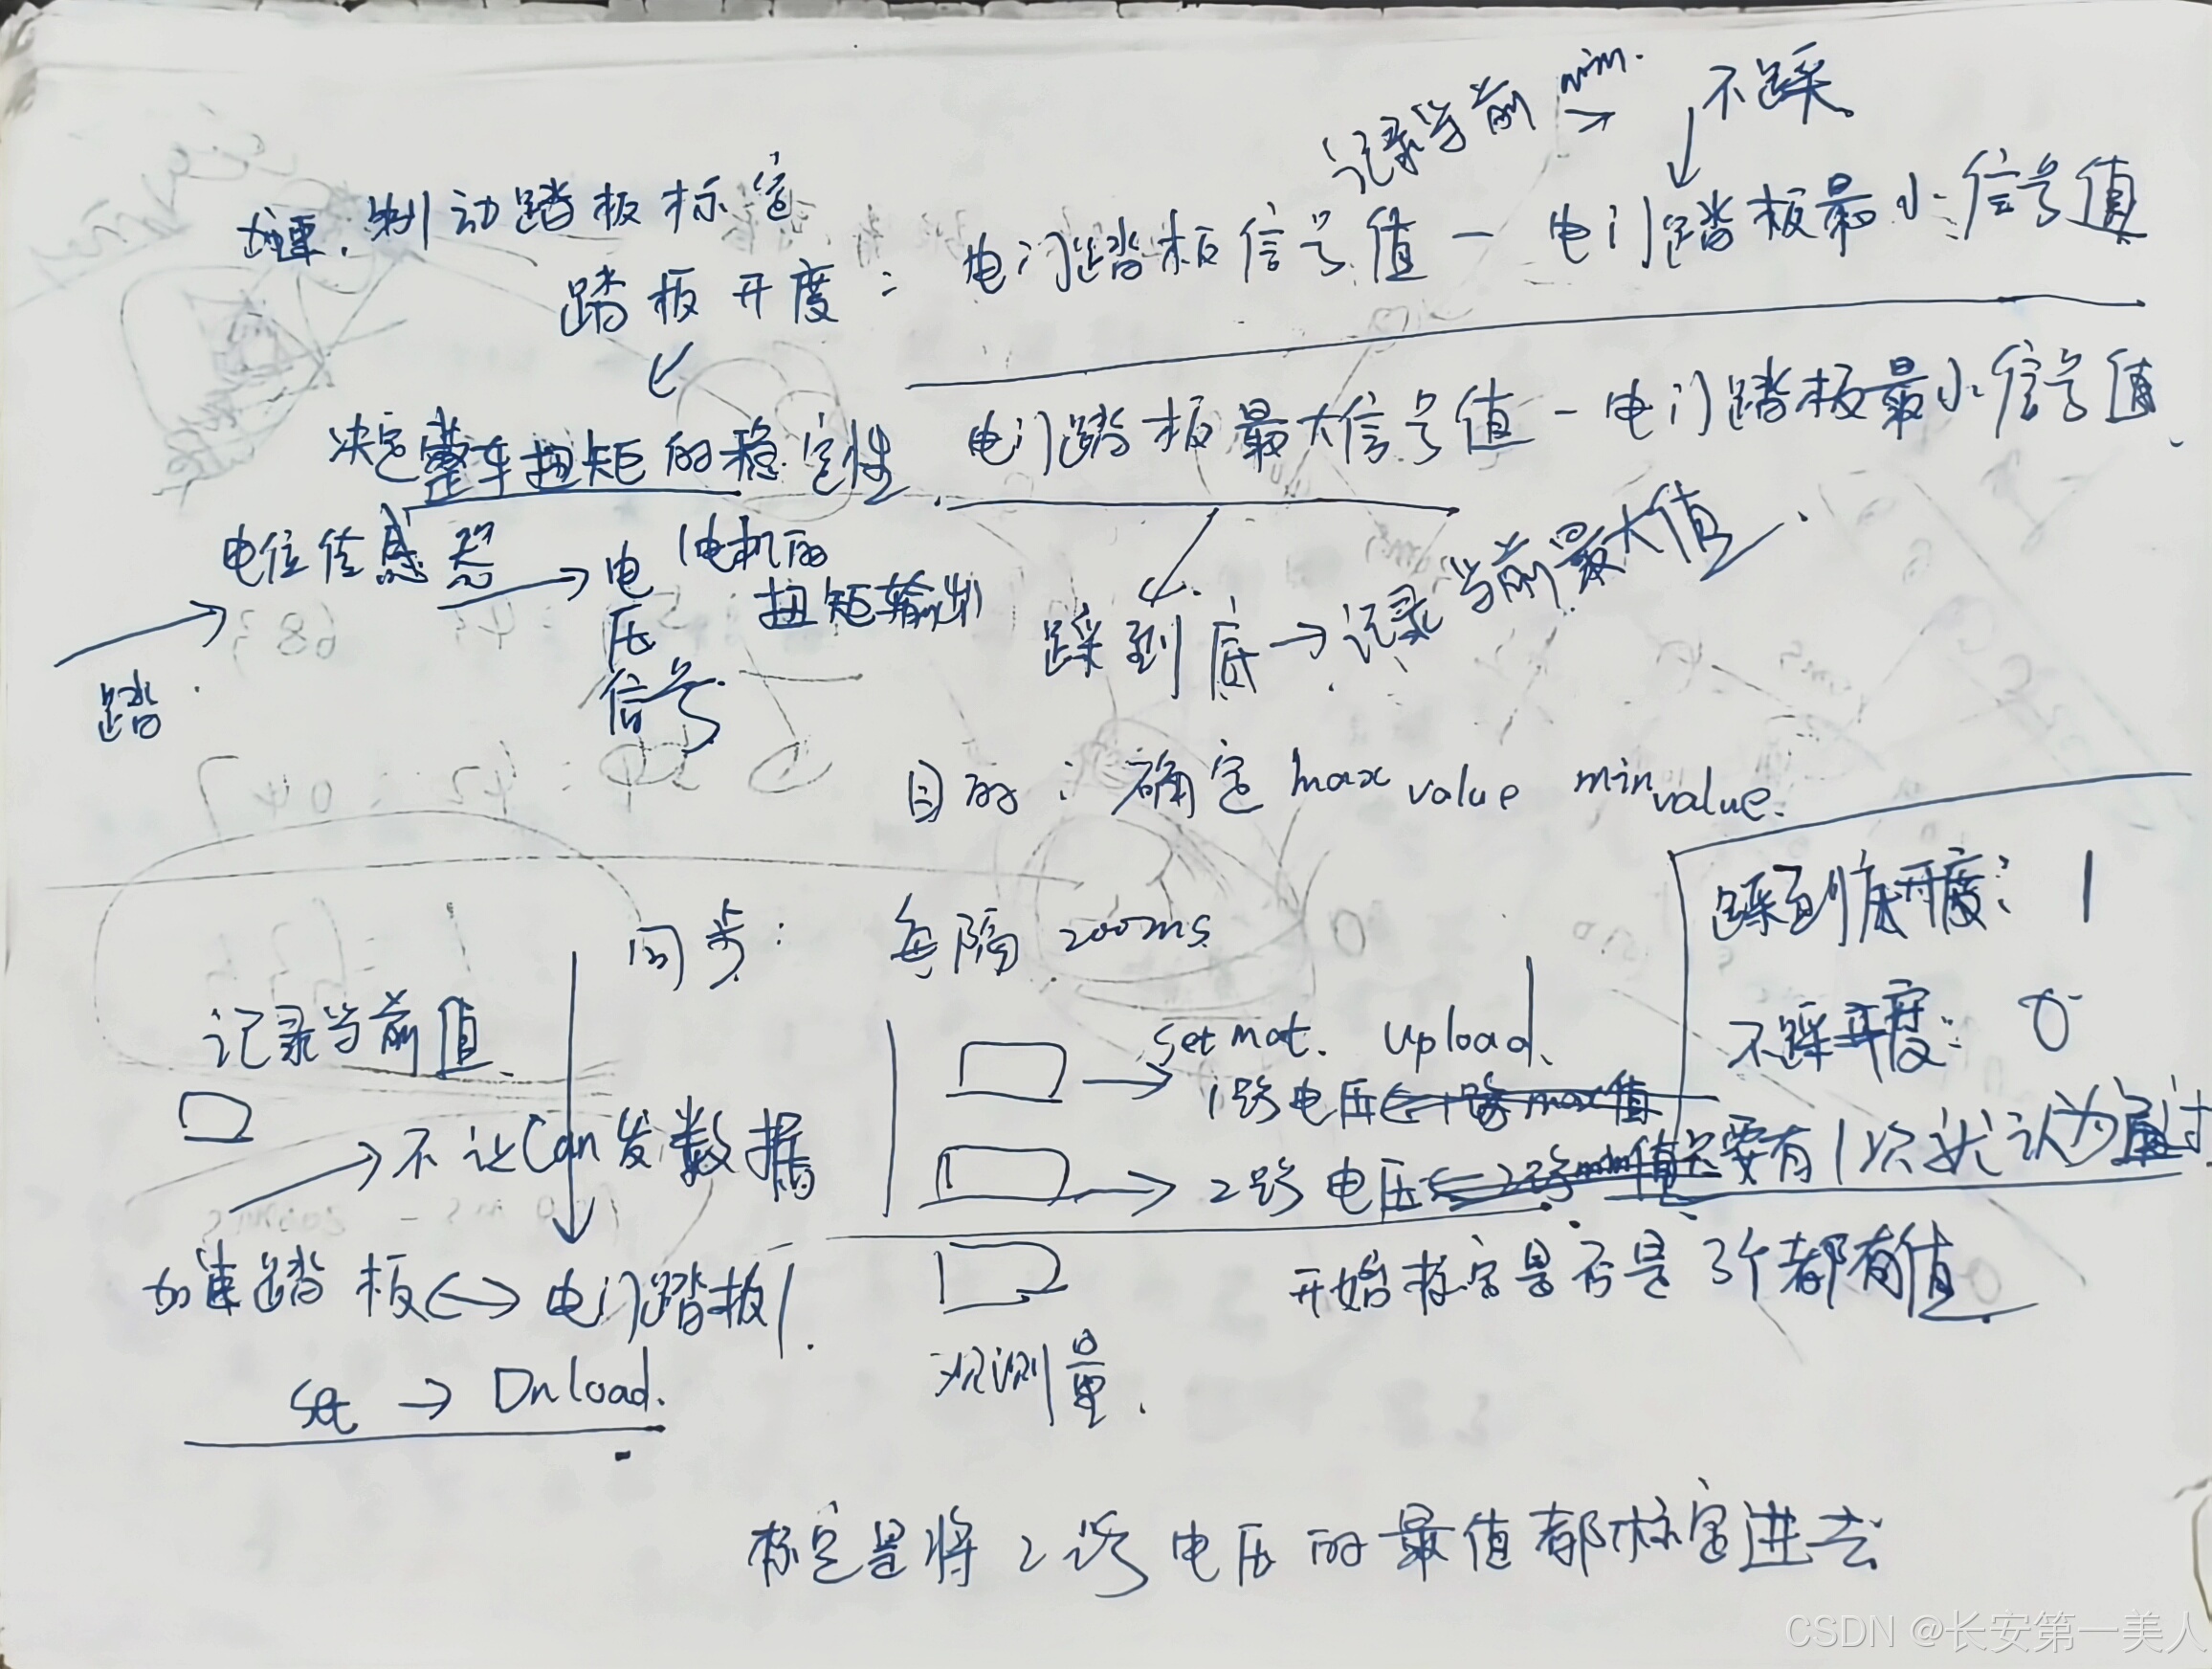 记录当前 min. 不踩
加速. 制动踏板标定
踏板开度: 电门踏板信号值 — 电门踏板最小信号值
电门踏板最大信号值 — 电门踏板最小信号值
决定整车扭矩的稳定性
踏
电位传感器
电压信号
电机的
扭矩输出
踩到底 → 记录当前最大值
目的: 确定 max value min value.
同步: 每隔 200ms
踩到底开度: 1
不踩开度: 0
记录当前值
不让Can发数据
加速踏板 ↔ 电门踏板
set → Dnload.
set mat. Upload.
1路电压
2路电压
只要有1次就认为通过
开始标定是否是3个都有值
观测量.
标定是将2路电压的最值都标定进去
CSDN @长安第一美人